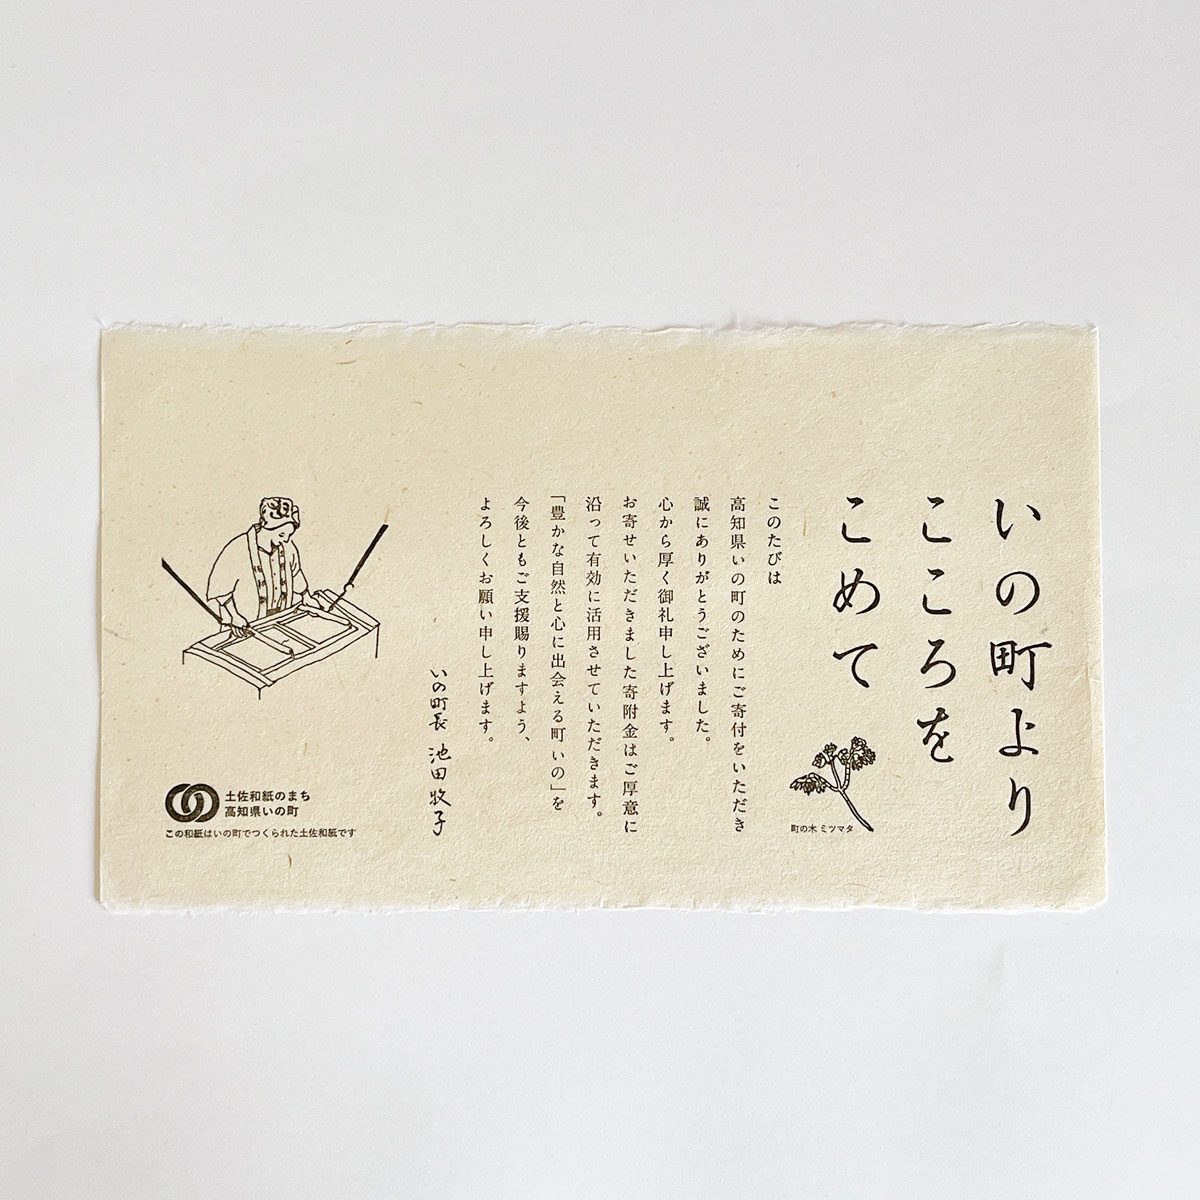 いの町より
こころを
こめて
町の木 ミツマタ
このたびは
高知県いの町のためにご寄付をいただき
誠にありがとうございました。
心から厚く御礼申し上げます。
お寄せいただきました寄附金はご厚意に
沿って有効に活用させていただきます。
「豊かな自然と心に出会える町いの」を
今後ともご支援賜りますよう、
よろしくお願い申し上げます。
いの町長 池田牧子
土佐和紙のまち
高知県いの町
この和紙はいの町でつくられた土佐和紙です